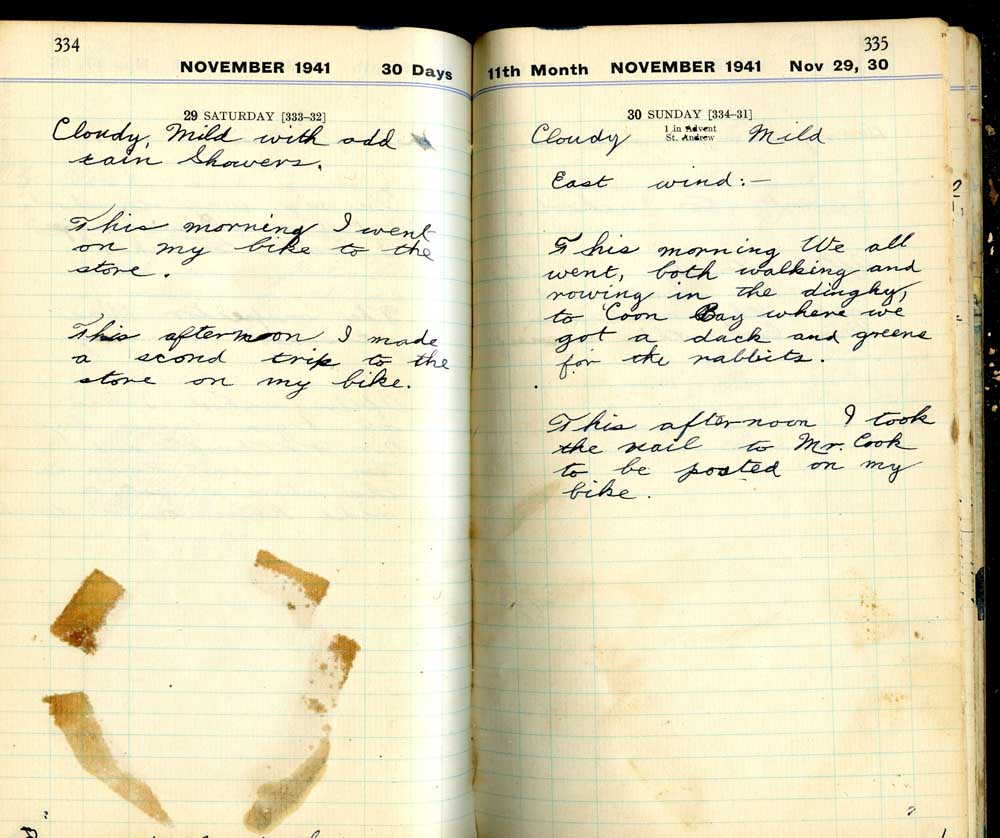 334
NOVEMBER 1941 30 Days
29 SATURDAY [333–32]
Cloudy, Mild with odd
rain Showers.
This morning I went
on my bike to the
store.
This afternoon I made
a scond trip to the
store on my bike.
335
11th Month NOVEMBER 1941 Nov 29, 30
30 SUNDAY [334–31]
1 in Advent
St. Andrew
Cloudy Mild
East wind:—
This morning We all
went, both walking and
rowing in the dinghy,
to 'Coon Bay where we
got a duck and greens
for the rabbits.
This afternoon I took
the mail to Mr. Cook
to be posted on my
bike.